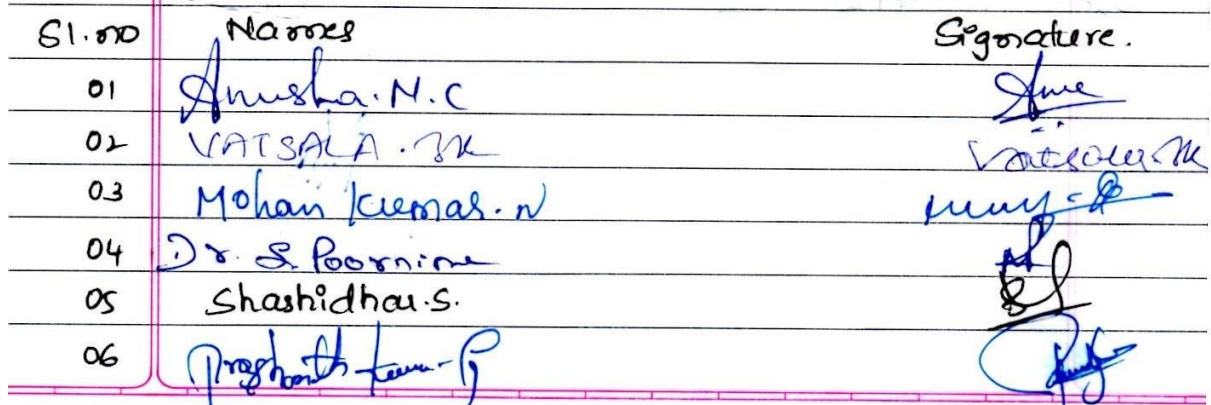 Sl.no Names Signature.
01 Anusha.N.C
02 VATSALA.BK Vatsala.BK
03 Mohan Kumar.N
04 Dr. S. Poornima
05 Shashidhar.S.
06 Prashanth Kumar